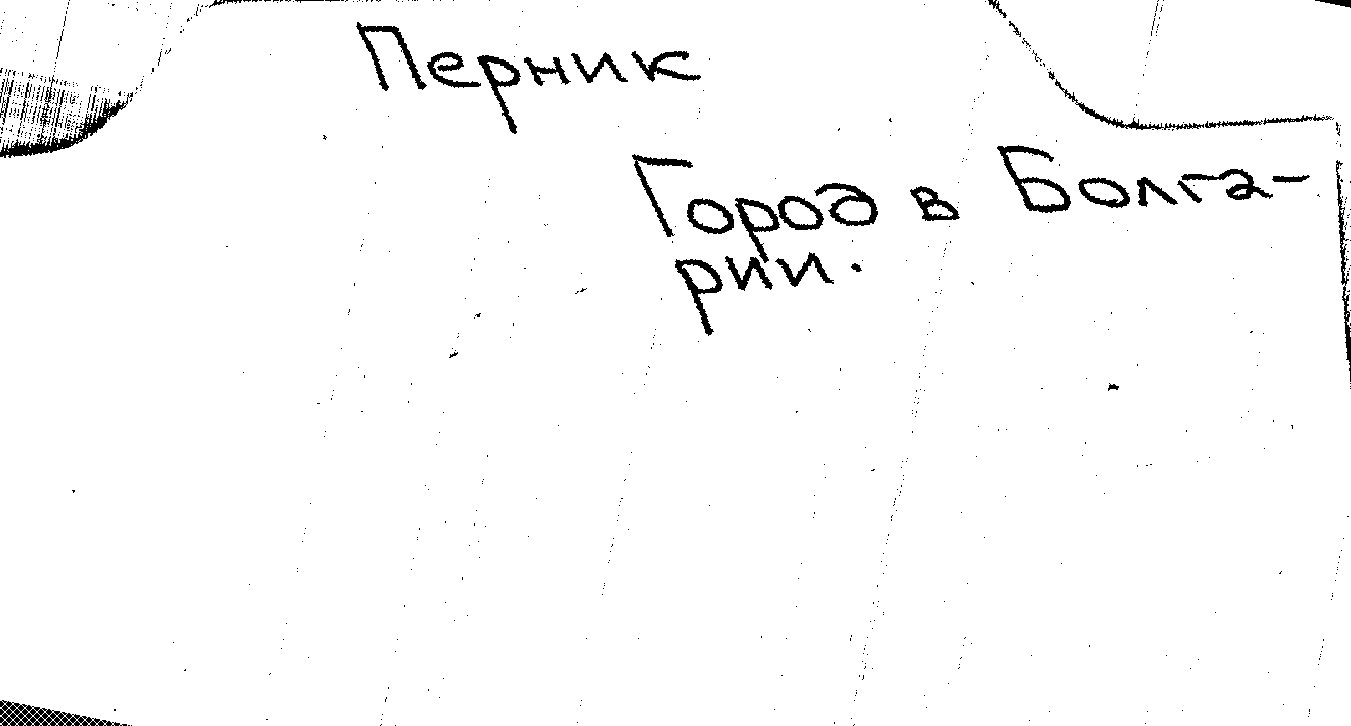 Перник
Город в Болга-
рии.